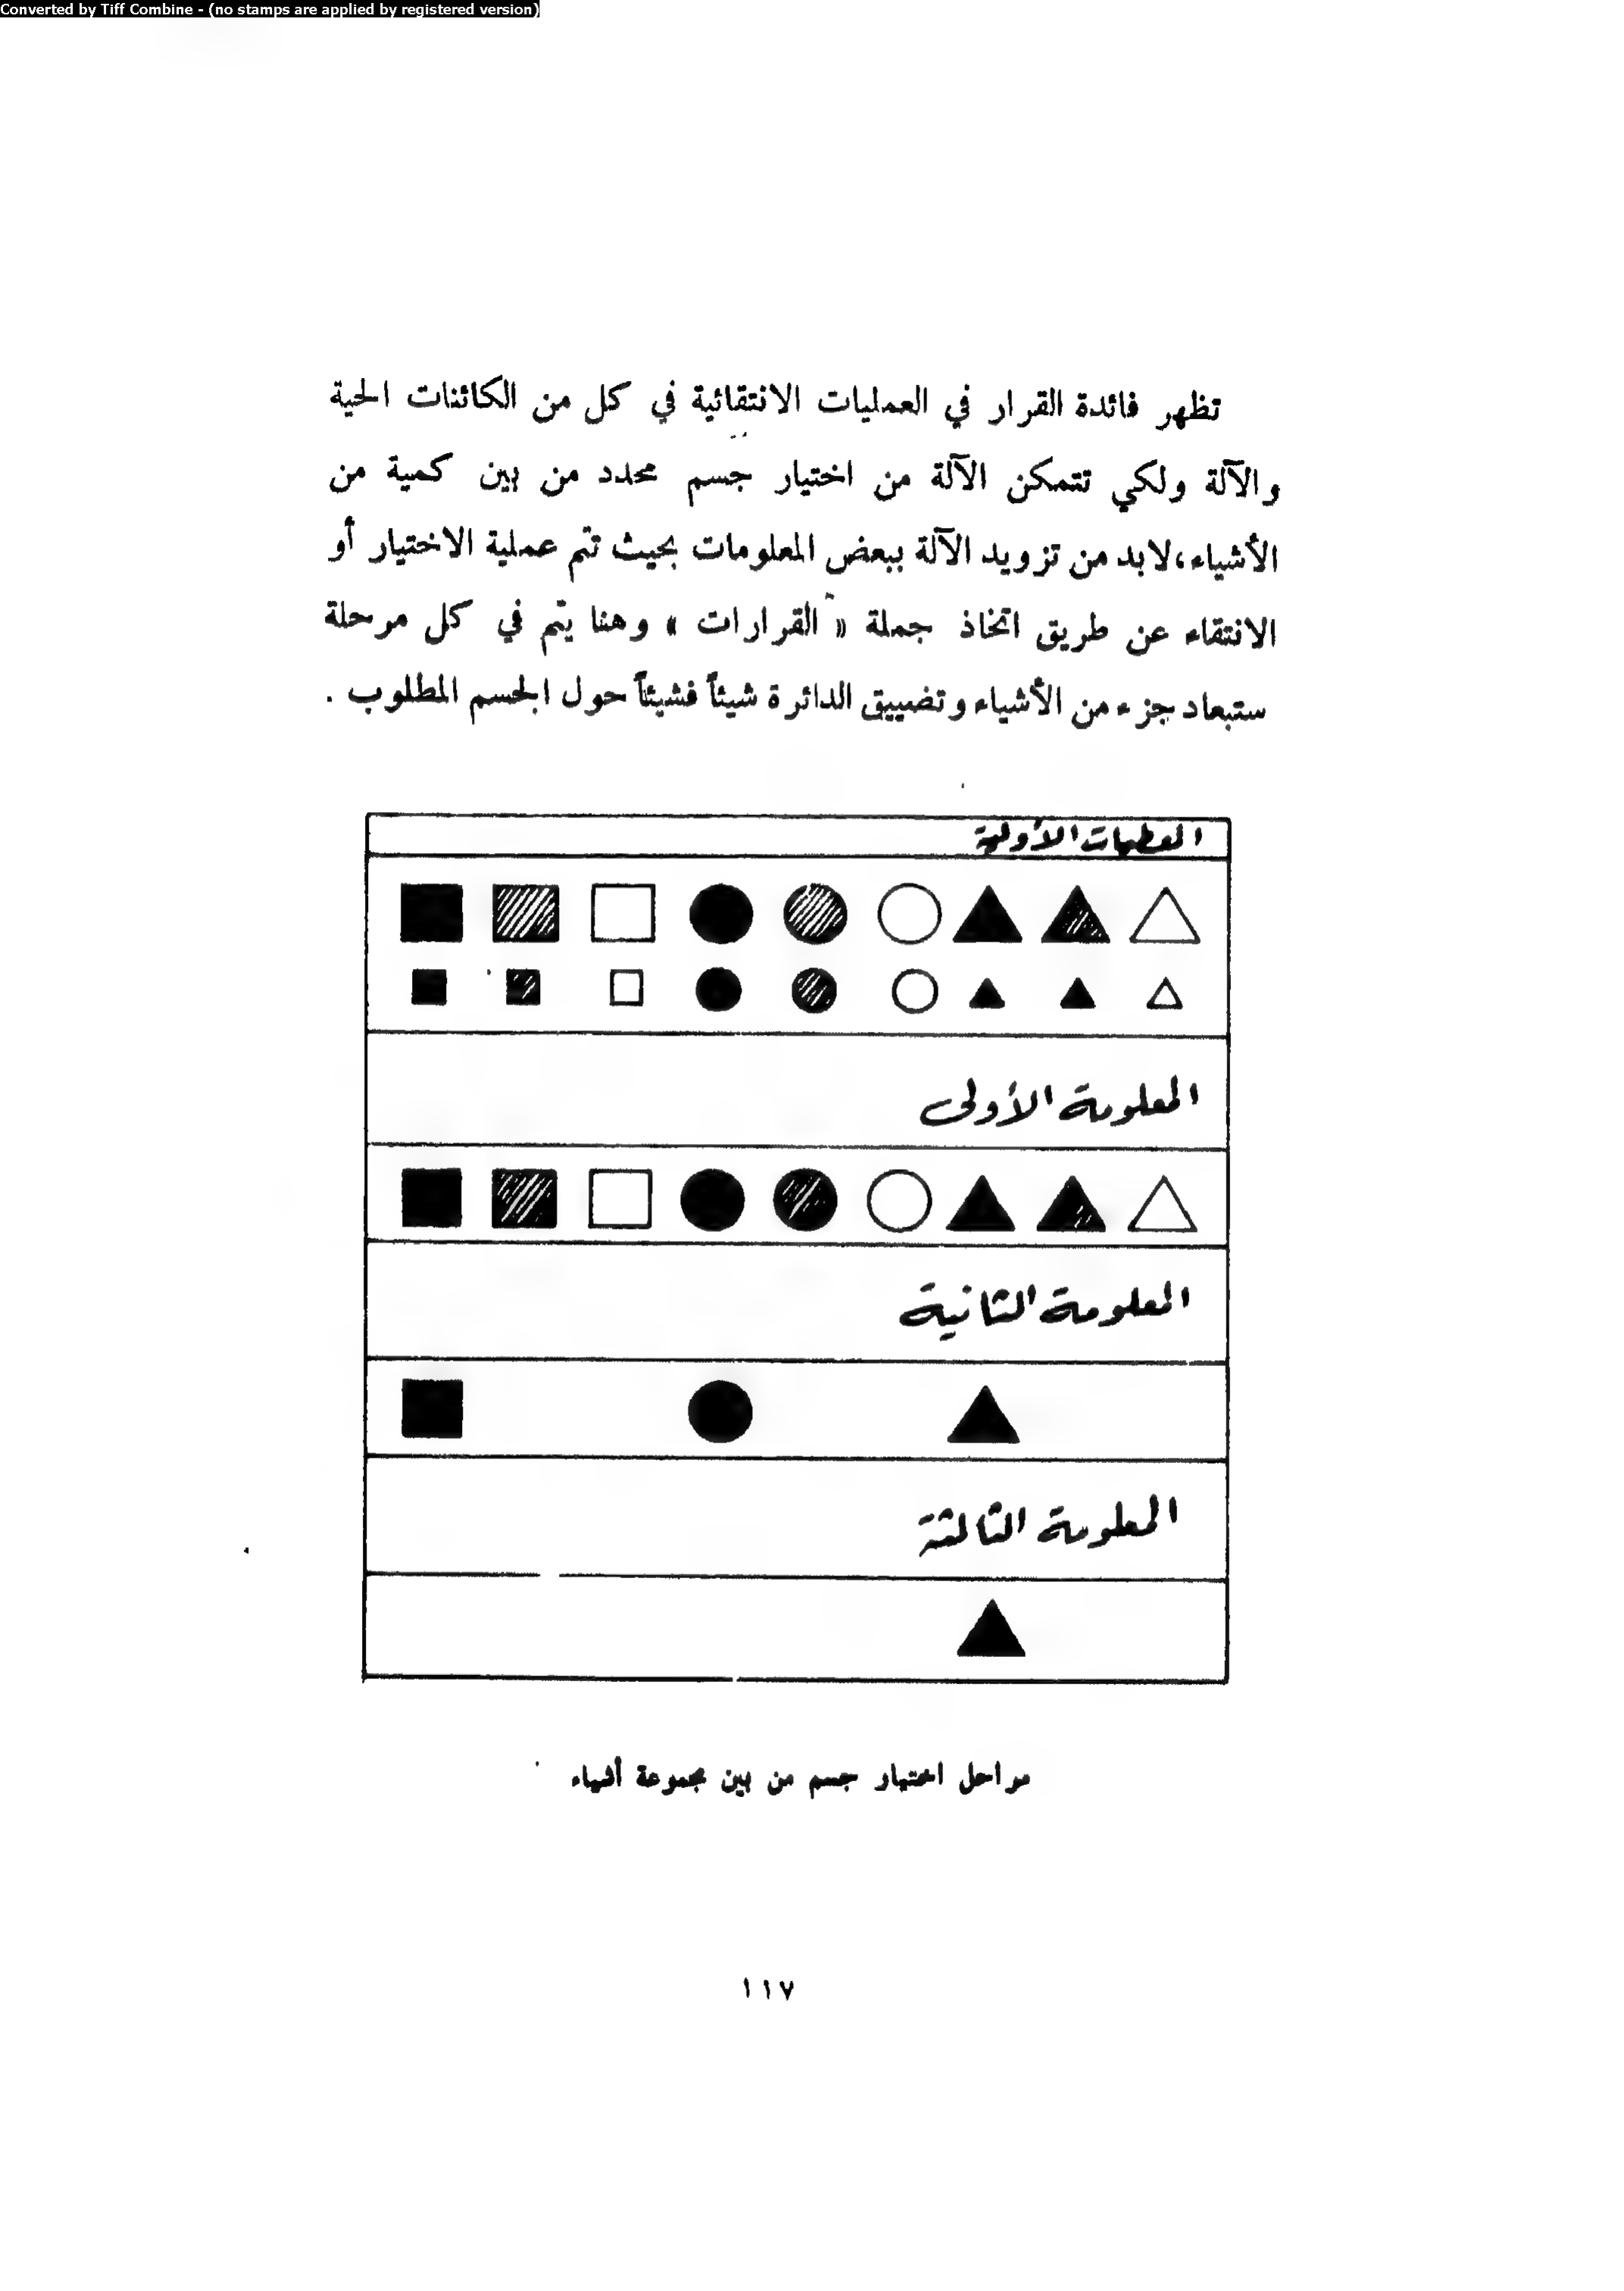 Converted by Tiff Combine - (no stamps are applied by registered version)
تظهر فائدة القرار في العمليات الانتقائية في كل من الكائنات الحية
والآلة ولكي تتمكن الآلة من اختيار جسم محدد من بين كمية من
الأشياء،لابد من تزويد الآلة ببعض المعلومات بحيث تتم عملية الاختيار أو
الانتقاء عن طريق اتخاذ جملة « القرارات » وهنا يتم في كل مرحلة
ستبعاد جزء من الأشياء وتضييق الدائرة شيئاً فشيئاً حول الجسم المطلوب .
المعطيات الأولية
المعلومة الأولى
المعلومة الثانية
المعلومة الثالثة
مراحل اختيار جسم من بين مجموعة أشياء
١١٧